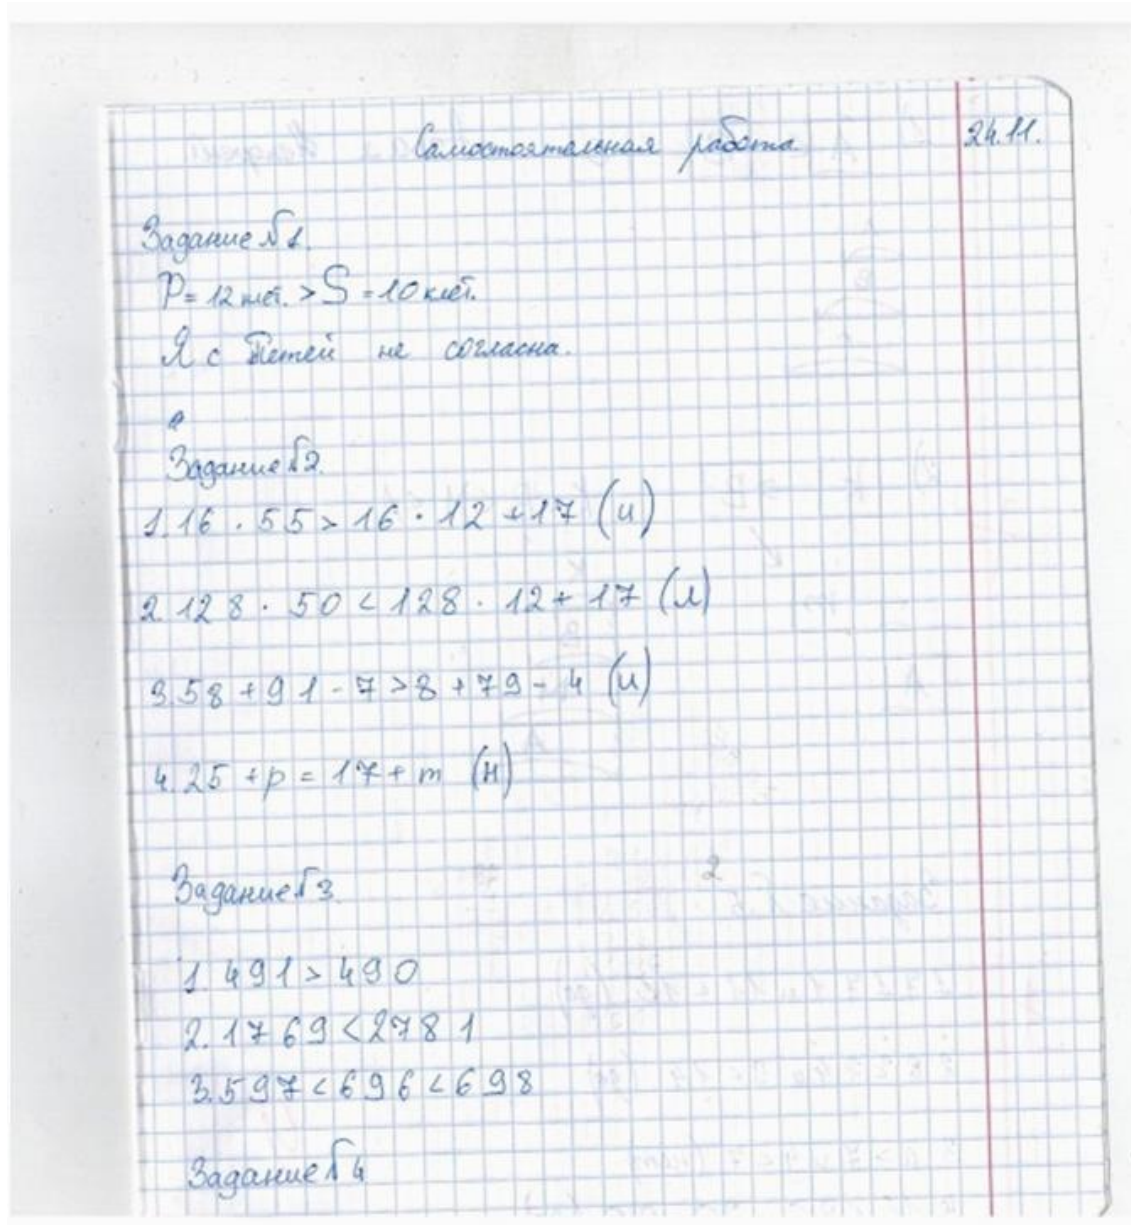 Самостоятельная работа 24.11.
Задание №1.
P = 12 клет. > S = 10 клет.
Я с Петей не согласна.
Задание №2.
1. 16 · 55 > 16 · 12 + 17 (и)
2. 128 · 50 < 128 · 12 + 17 (л)
3. 58 + 91 - 7 > 8 + 79 - 4 (и)
4. 25 + p = 17 + m (н)
Задание №3.
1. 491 > 490
2. 1769 < 2781
3. 597 < 696 < 698
Задание №4